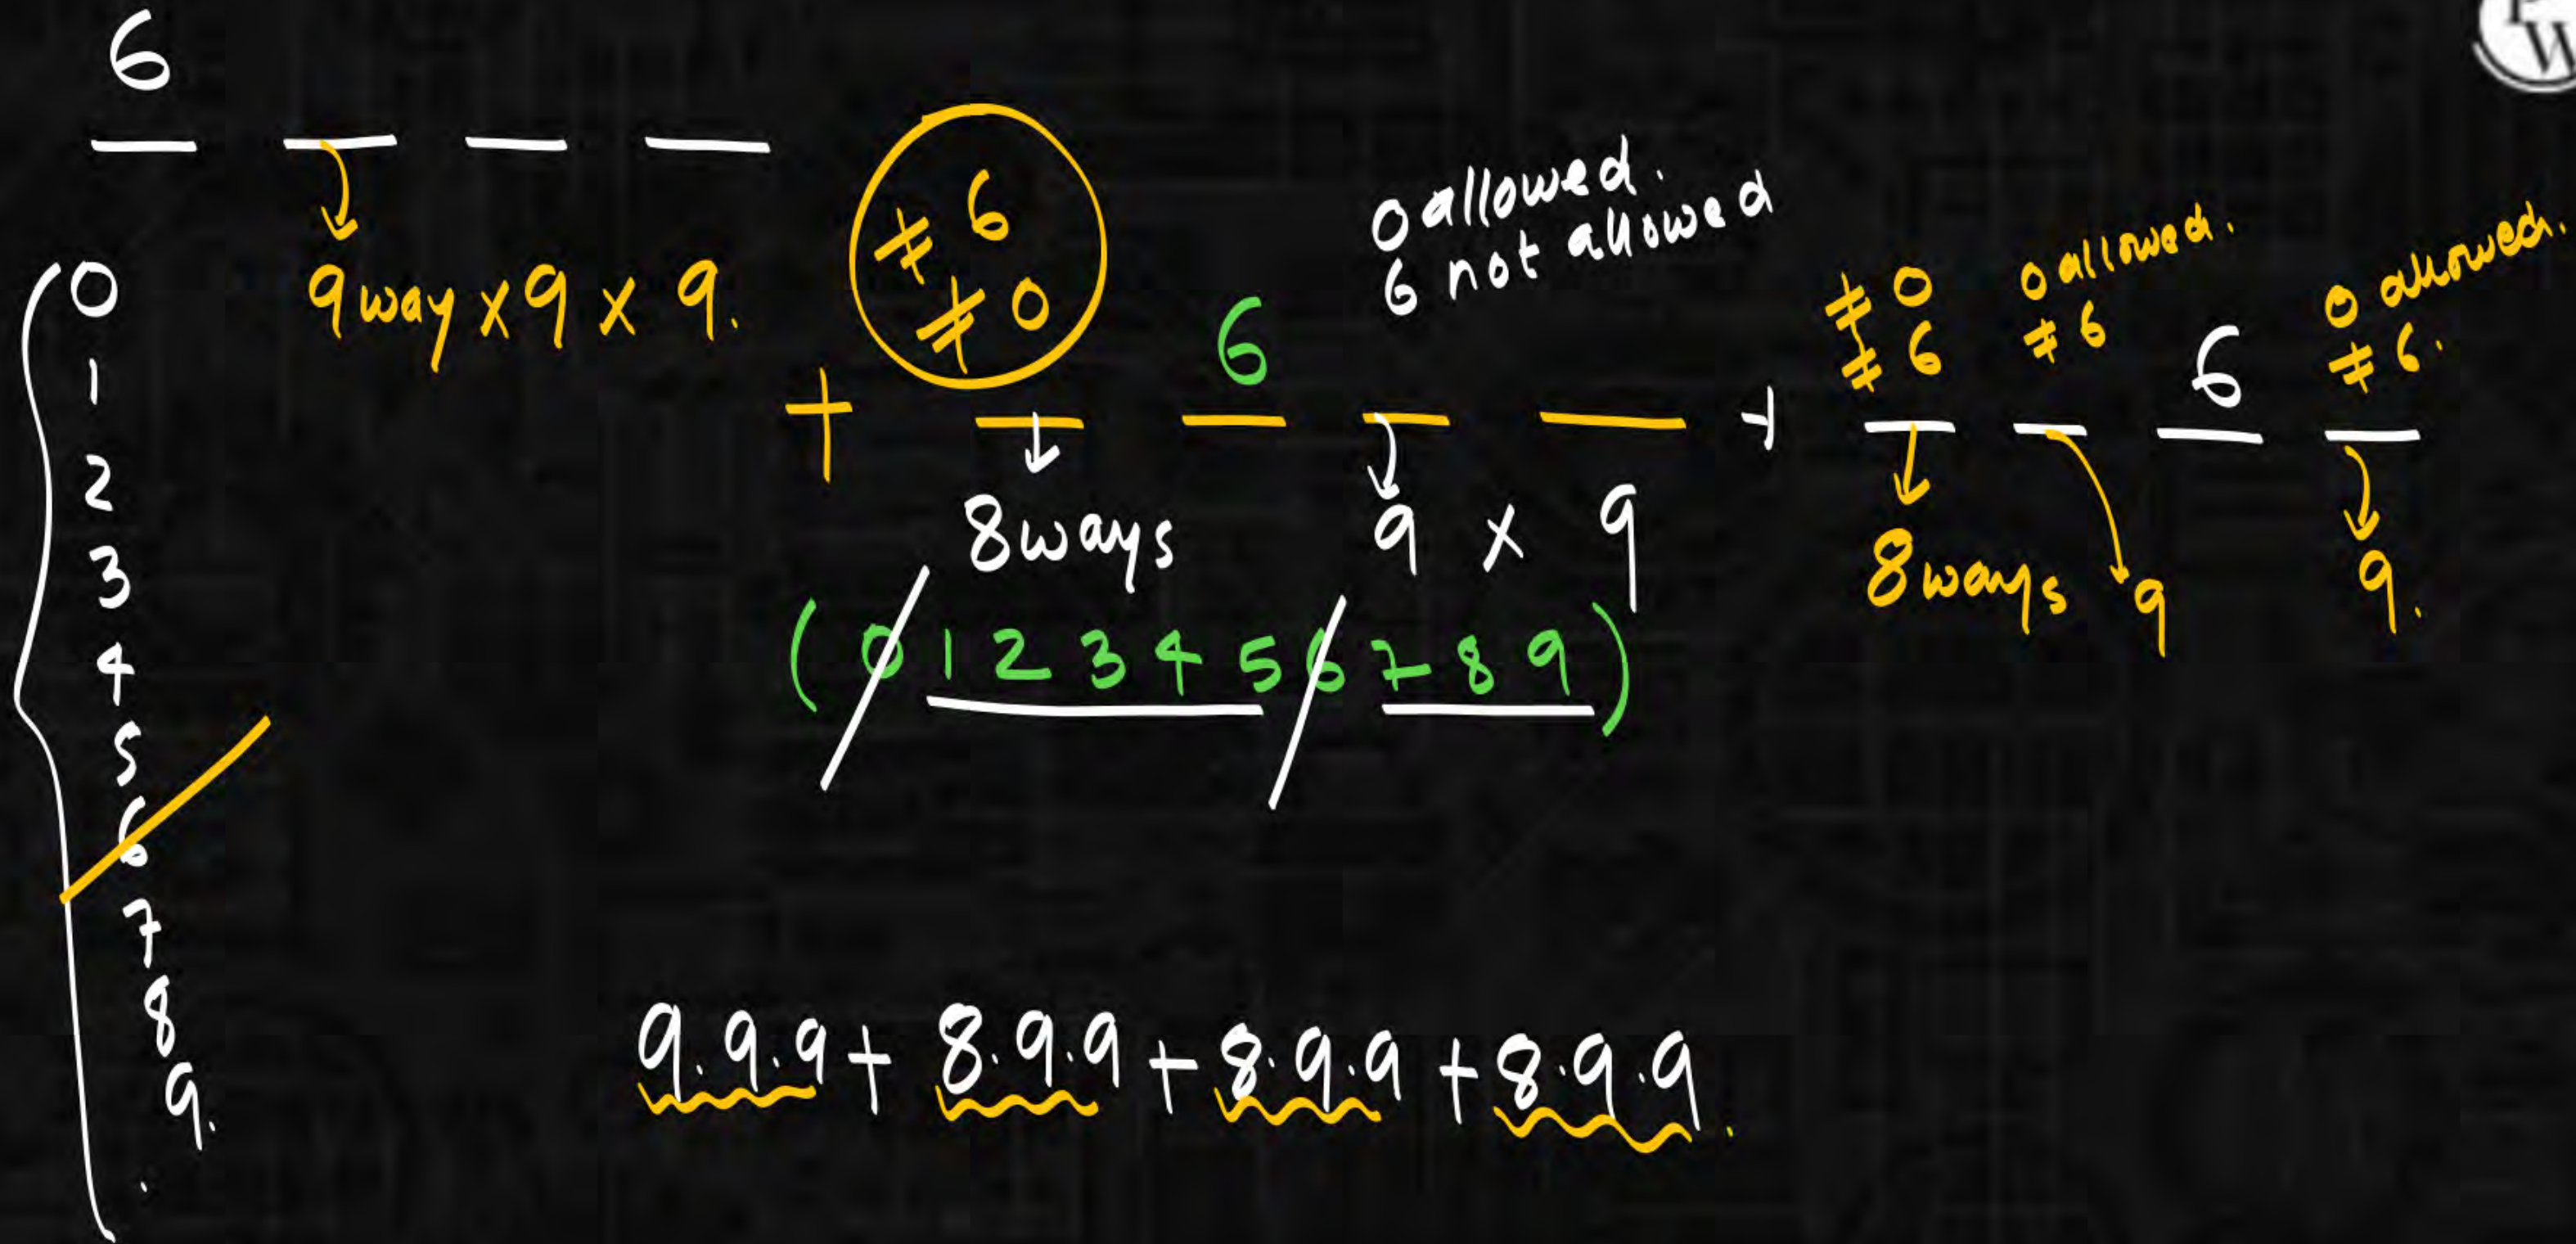 6
9 way × 9 × 9.
0
1
2
3
4
5
6
7
8
9.
+
≠ 6
≠ 0
6
0 allowed.
6 not allowed
8 ways 9 × 9
( 0 1 2 3 4 5 6 7 8 9 )
+
≠ 0
≠ 6
0 allowed.
≠ 6
6
0 allowed.
≠ 6.
8 ways 9 9.
9.9.9 + 8.9.9 + 8.9.9 + 8.9.9.
P
W